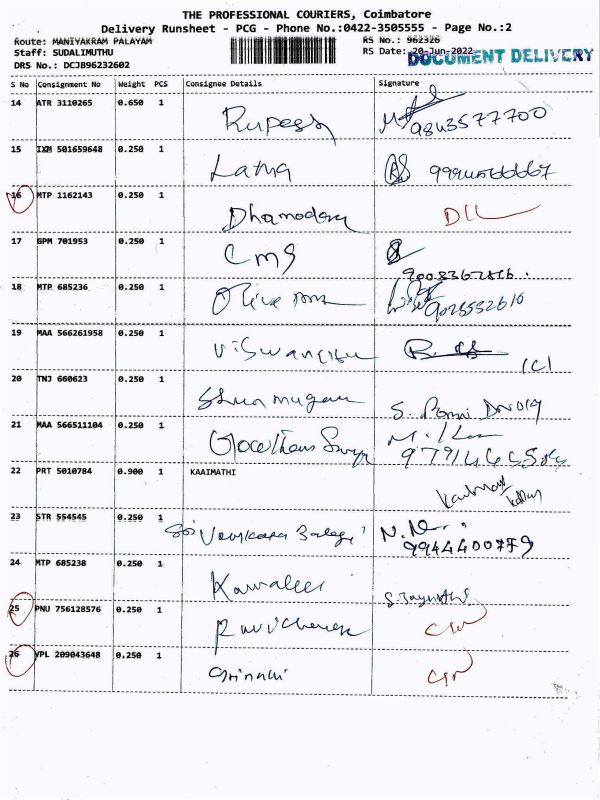 THE PROFESSIONAL COURIERS, Coimbatore
Delivery Runsheet - PCG - Phone No.:0422-3505555 - Page No.:2
Route: MANIYAKRAM PALAYAM RS No.: 962326
Staff: SUDALIMUTHU RS Date: 20-Jun-2022 DOCUMENT DELIVERY
DRS No.: DCJB96232602
S No Consignment No Weight PCS Consignee Details Signature
14 ATR 3110265 0.650 1 Rupesh 9843577700
15 IXM 501659648 0.250 1 Latha
16 MTP 1162143 0.250 1 Dhamodara DIL
17 GPM 701953 0.250 1 CMS
18 MTP 685236 0.250 1 Olive
19 MAA 566261958 0.250 1 Viswanathan ICI
20 TNJ 660623 0.250 1 Shunmugam S.
21 MAA 566511104 0.250 1
22 PRT 5010784 0.900 1 KAAIMATHI
23 STR 554545 0.250 1 Sri Balaji 9944400779
24 MTP 685238 0.250 1
25 PNU 756128576 0.250 1
26 VPL 209043648 0.250 1